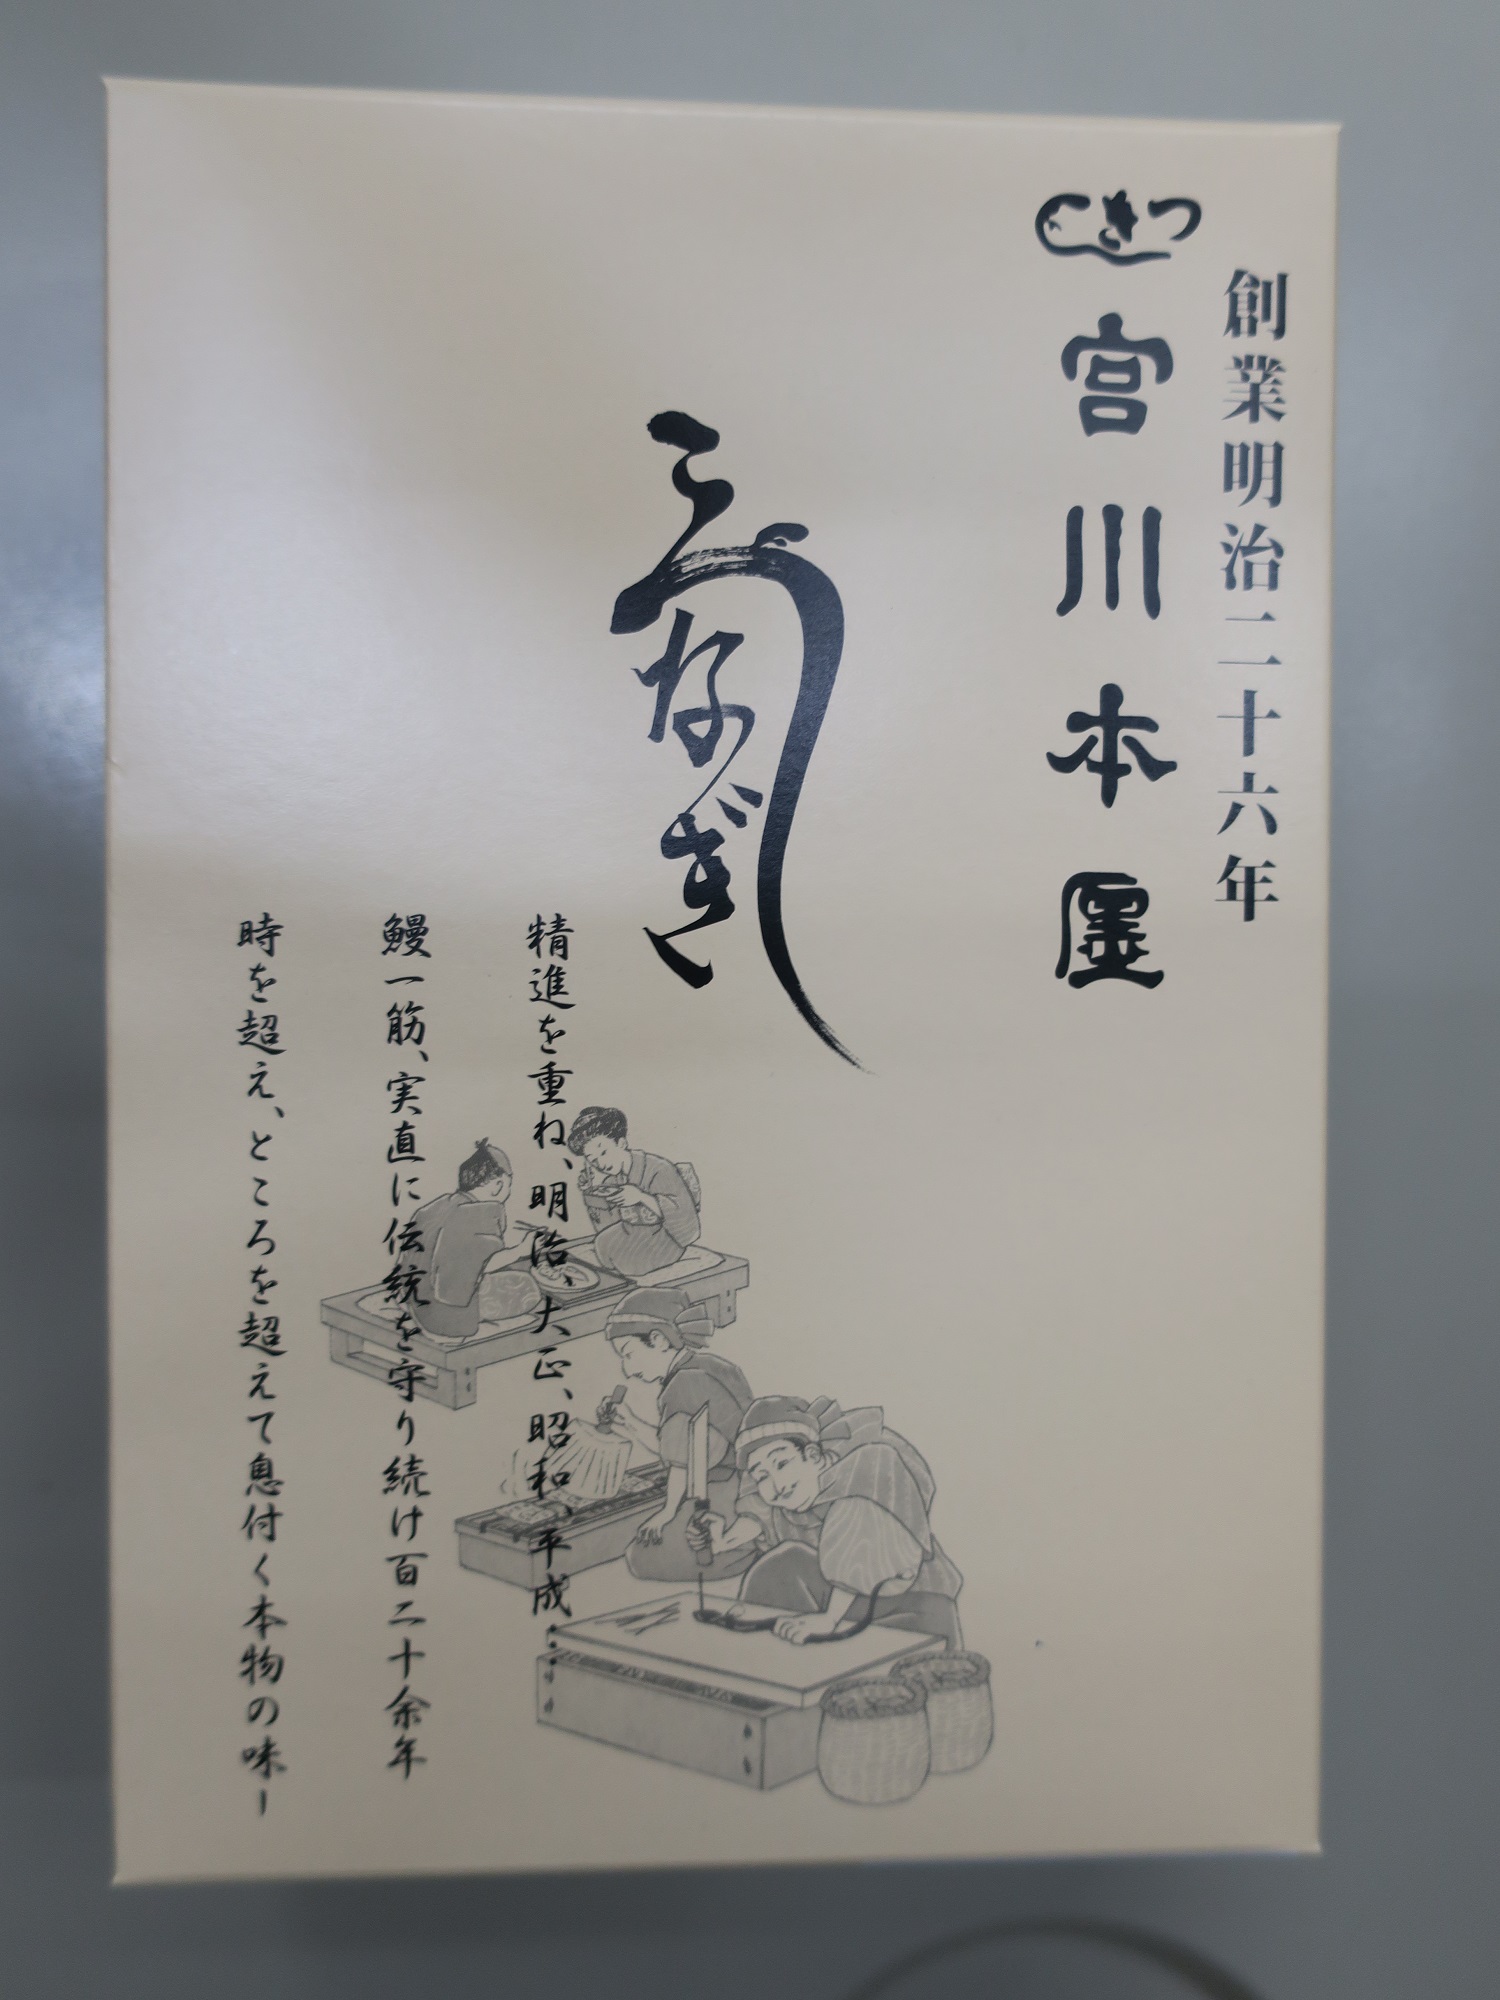 創業明治二十六年
つきじ
宮川本廛
うなぎ
精進を重ね、明治、大正、昭和、平成・・
鰻一筋、実直に伝統を守り続け百二十余年
時を超え、ところを超えて息付く本物の味ー